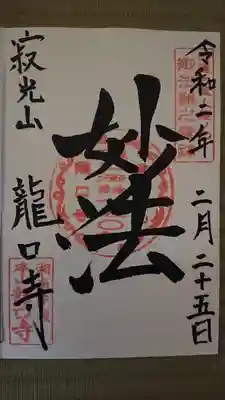 令和二年 二月二十五日
妙法
寂光山 龍口寺